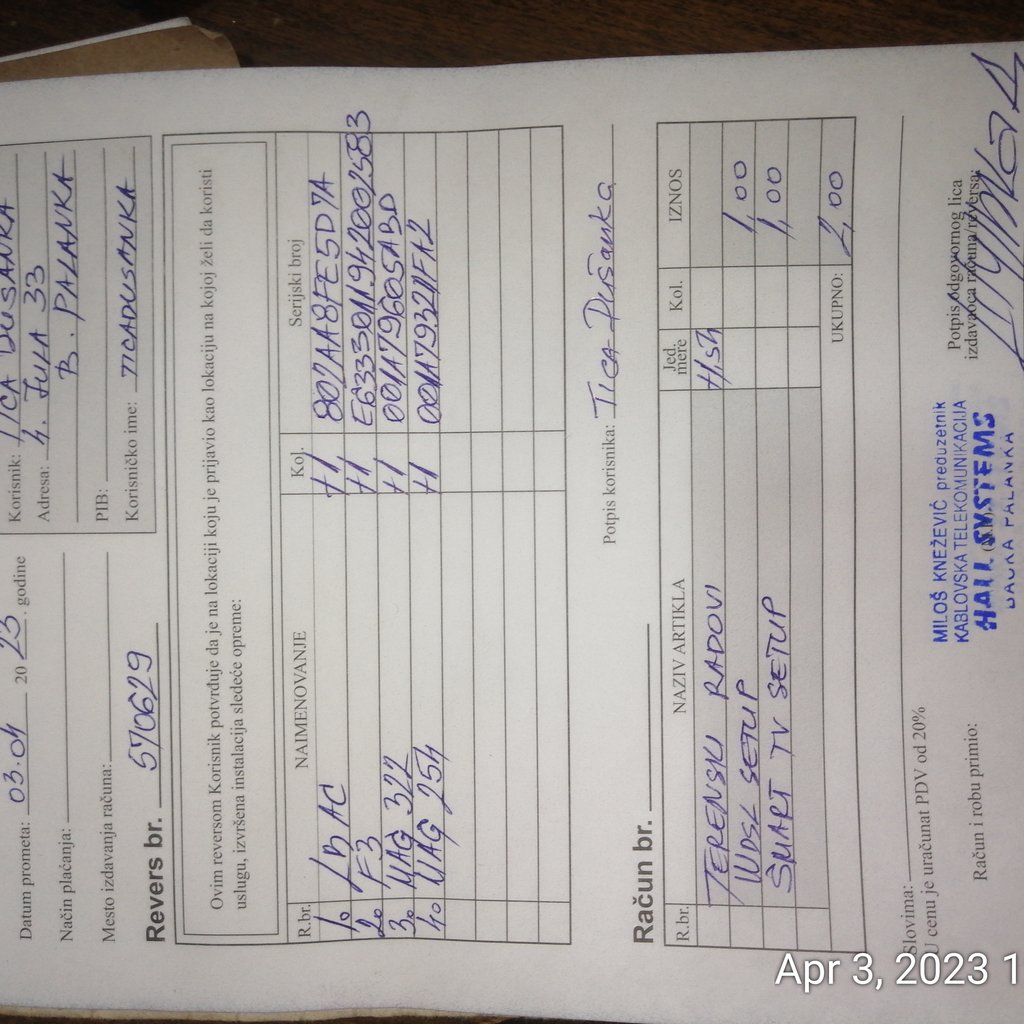 Korisnik: TICA DUŠANKA
Adresa: 4. JULA 33
B. PALANKA
PIB:
Korisničko ime: TICADUSANKA
Datum prometa: 03.04 20 23. godine
Način plaćanja:
Mesto izdavanja računa:
Revers br. 570629
Ovim reversom Korisnik potvrđuje da je na lokaciji koju je prijavio kao lokaciju na kojoj želi da koristi
uslugu, izvršena instalacija sledeće opreme:
R.br. NAIMENOVANJE Kol. Serijski broj
1. LB AC +1 802AA8FE5D7A
2. F3 +1
3. MAG 322 +1 001A7960SABD
4. MAG 254 +1 001A79321FA2
Potpis korisnika: Tica Dušanka
Račun br.
R.br. NAZIV ARTIKLA Jed. mere Kol. IZNOS
TERENSKI RADOVI
WDSL SETUP 1,00
SMART TV SETUP 1,00
UKUPNO: 2,00
Slovima:
U cenu je uračunat PDV od 20%
Račun i robu primio:
MILOŠ KNEŽEVIĆ preduzetnik
KABLOVSKA TELEKOMUNIKACIJA
HALL SYSTEMS
BAČKA PALANKA
Potpis odgovornog lica
izdavaoca računa/reversa:
Apr 3, 2023 1